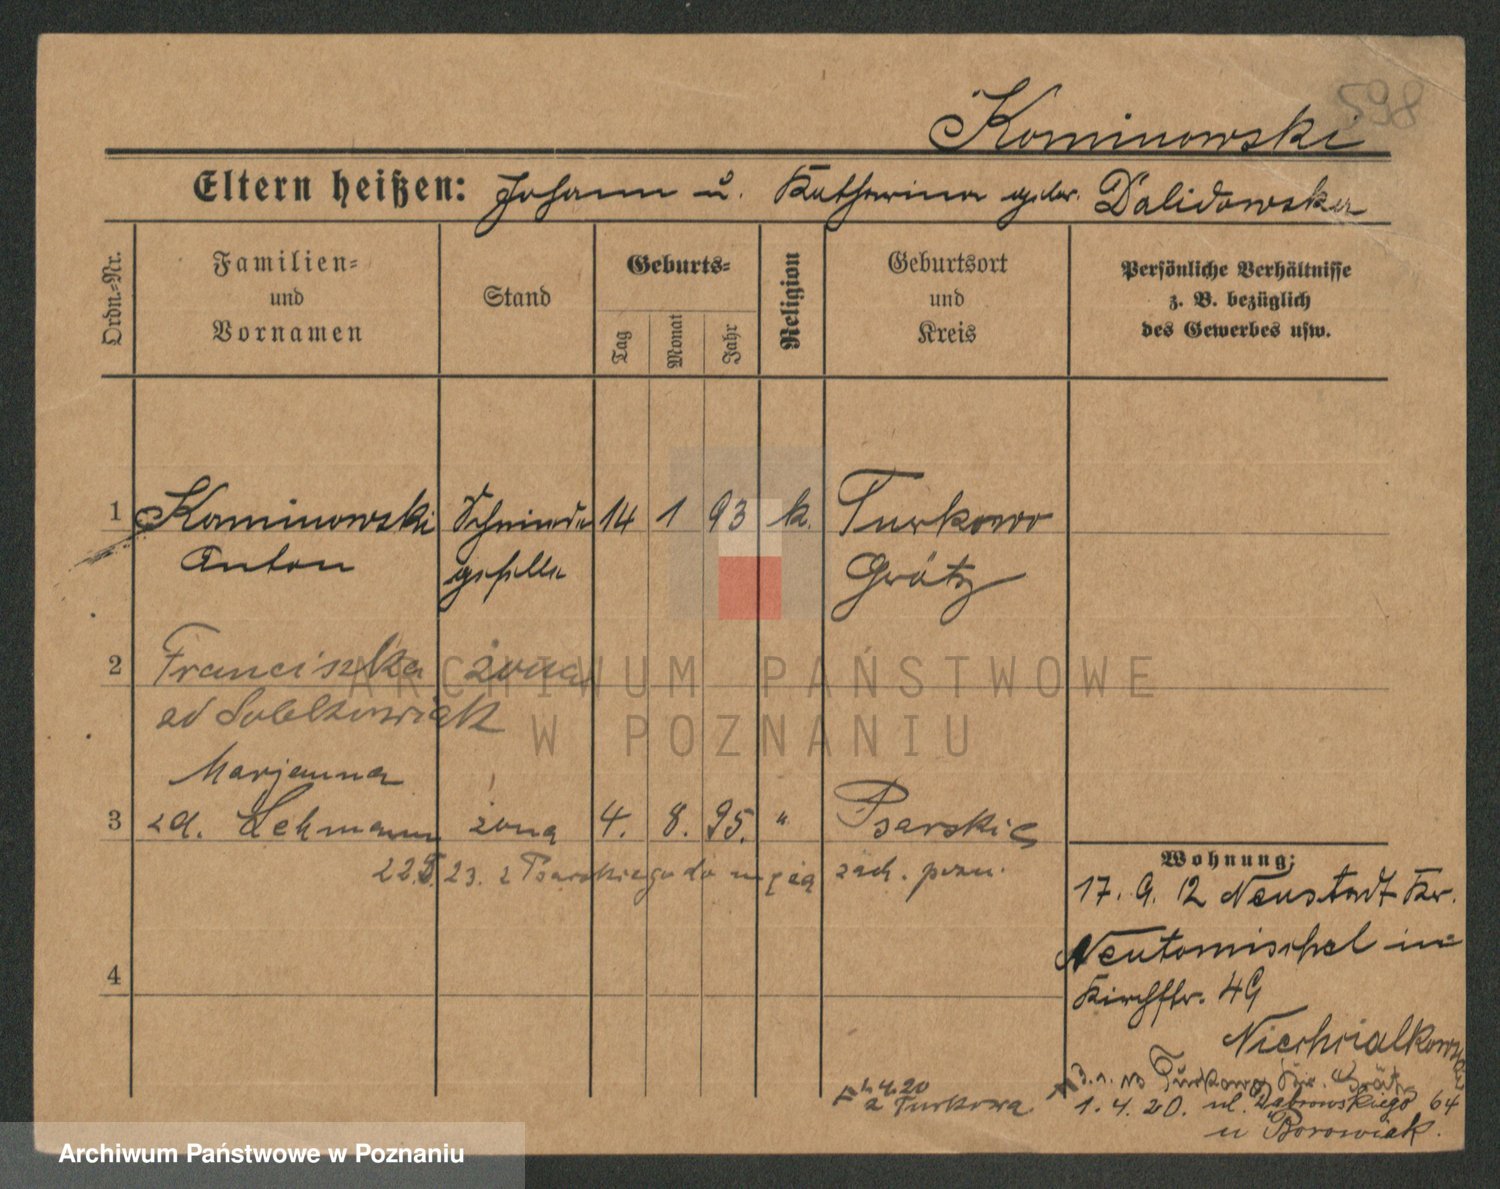 598
Kominowski
Eltern heißen: Johann u. Katharina geb. Dalidowska
Ordn.-Nr.
Familien-
und
Vornamen
Stand
Geburts-
Tag
Monat
Jahr
Religion
Geburtsort
und
Kreis
Persönliche Verhältnisse
z. B. bezüglich
des Gewerbes usw.
1 Kominowski Schmiede 14 1 93 k. Turkowo
Anton geselle Grätz
2 Franciszka żona
zd Sobkowiak
Marjanna
3 zd. Lehmann żona 4. 8. 95. " Psarskie
23. z Psarskiego do zach. pozn.
4
Wohnung:
17. 9. 12 Neustadt Kr.
Neutomischel in
Kirchstr. 49
Niechcialkowski
Turkowo Kr. Grätz
4.20
z Turkowa
1. 4. 20. ul. Dąbrowskiego 64
u Borowiak.
ARCHIWUM PAŃSTWOWE
W POZNANIU
Archiwum Państwowe w Poznaniu